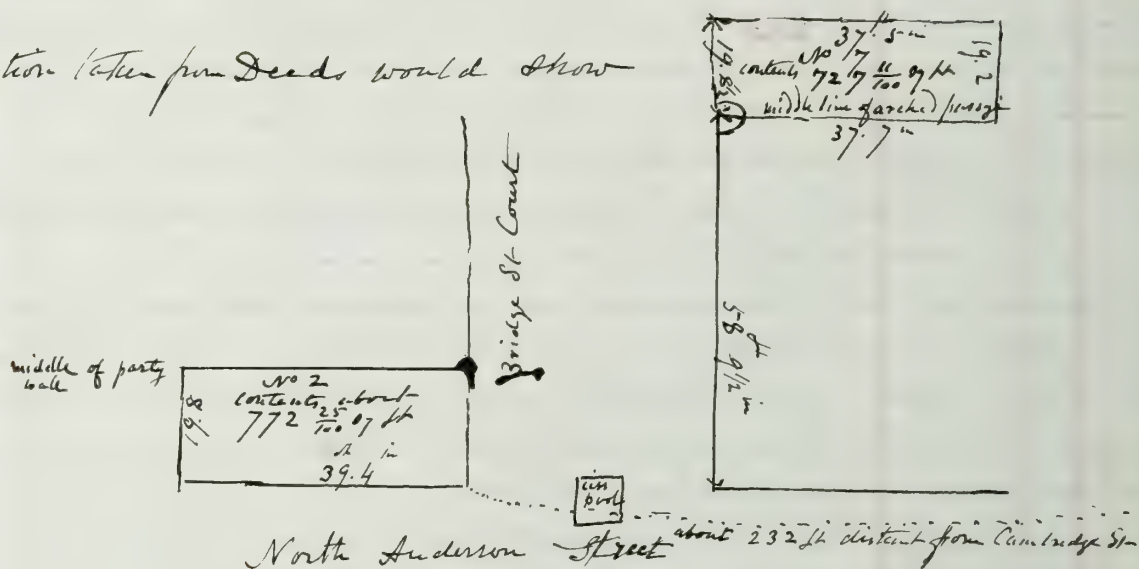 tion taken from Deeds would show
ft
37. 5 in
No 7
contents 727 11/100 sq ft
middle line of arched passage
37. 7 in
19. 8½
19. 2
58 ft 9½ in
Bridge St Court
middle of party
wall
No 2
contents about
772 25/100 sq ft
ft in
39. 4
19. 8
cess
pool
North Anderson Street
about 232 ft distant from Cambridge St